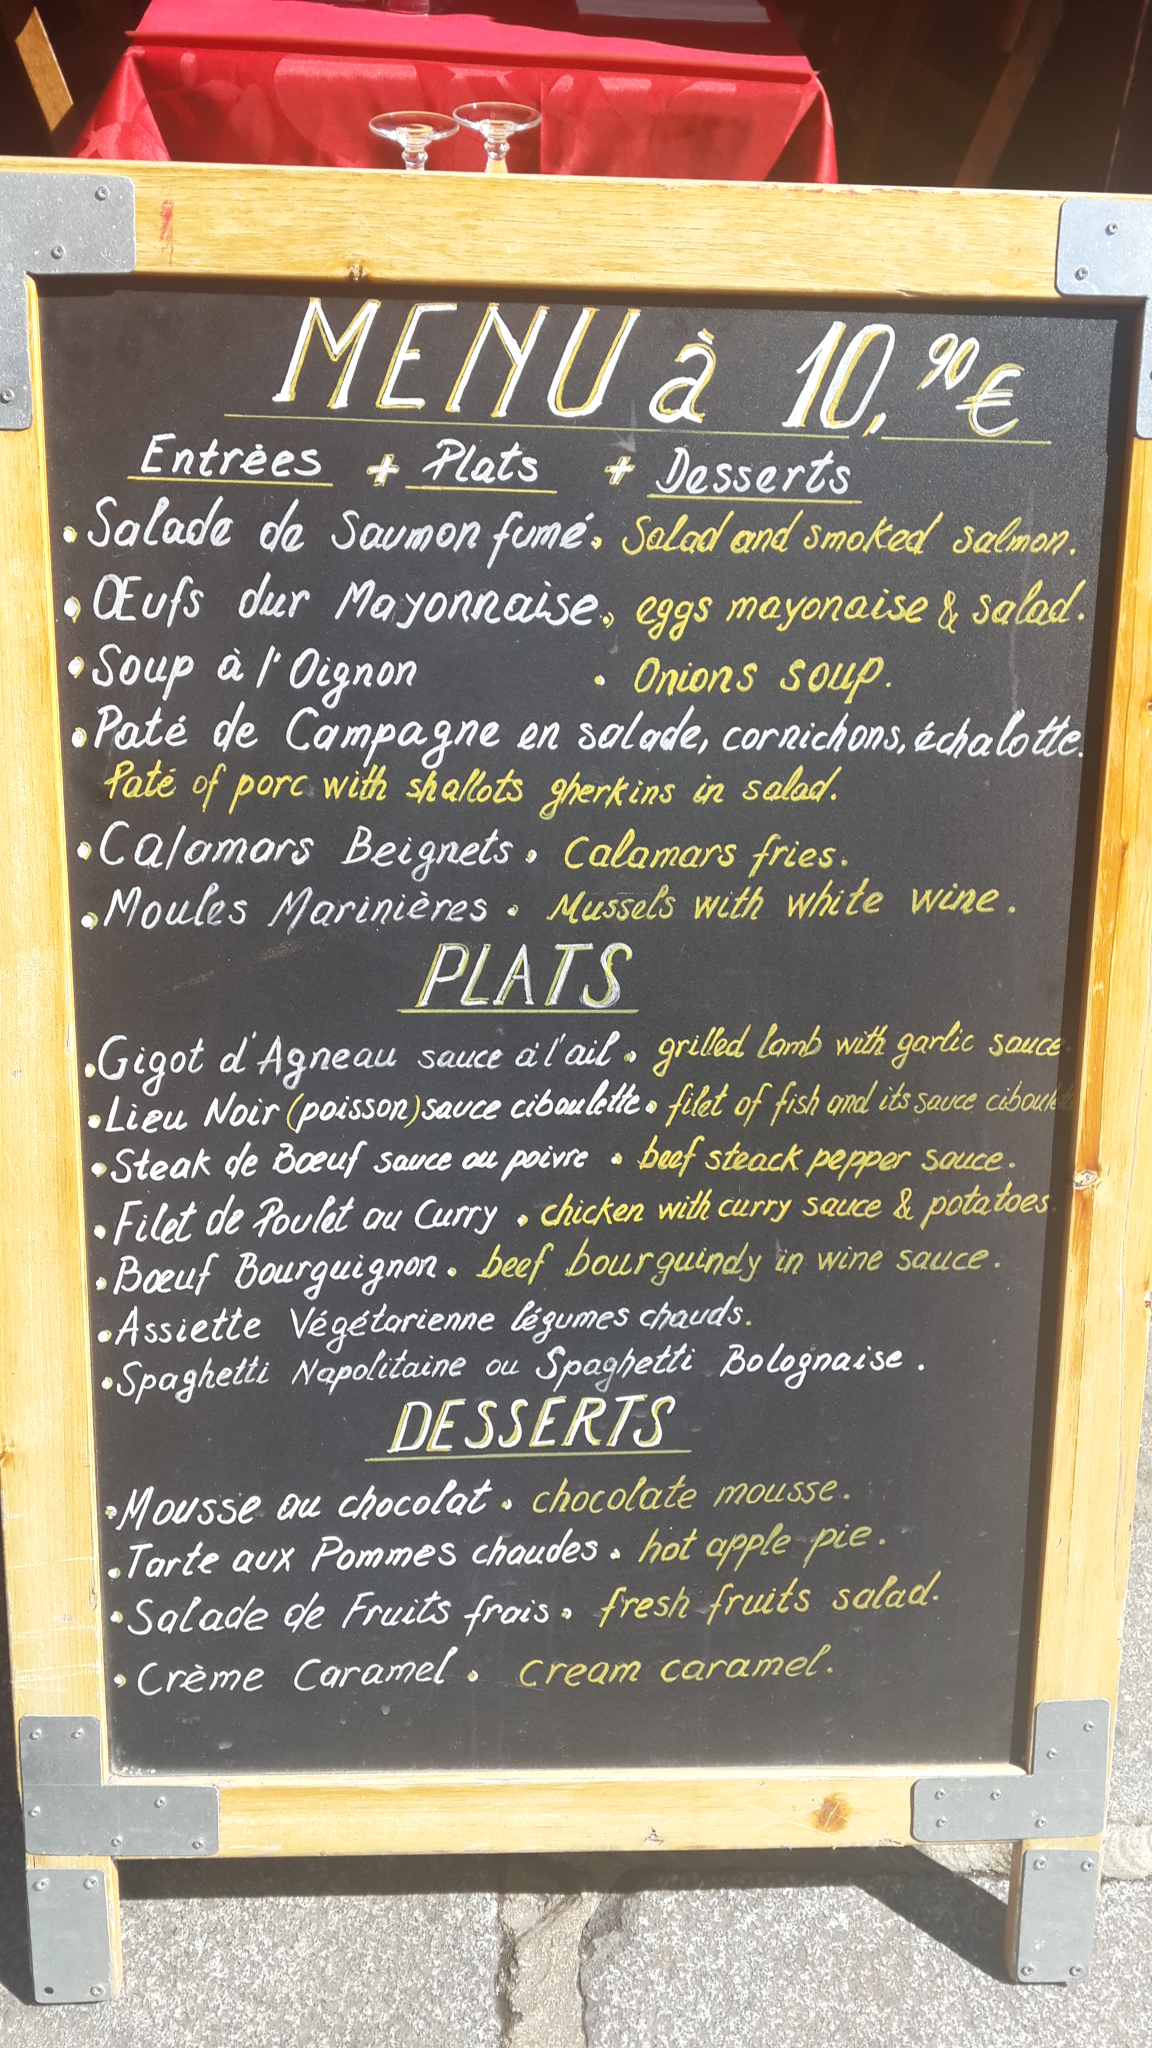 MENU à 10,90€
Entrèes + Plats + Desserts
• Salade de Saumon fumé • Salad and smoked salmon.
• Œufs dur Mayonnaise • eggs mayonaise & salad.
• Soup à l'Oignon • Onions soup.
• Paté de Campagne en salade, cornichons, échalotte.
Paté of porc with shallots gherkins in salad.
• Calamars Beignets • Calamars fries.
• Moules Marinières • Mussels with white wine.
PLATS
• Gigot d'Agneau sauce à l'ail • grilled lamb with garlic sauce
• Lieu Noir (poisson) sauce ciboulette • filet of fish and its sauce ciboulette
• Steak de Bœuf sauce au poivre • beef steack pepper sauce.
• Filet de Poulet au Curry • chicken with curry sauce & potatoes.
• Bœuf Bourguignon • beef bourguindy in wine sauce.
• Assiette Végétarienne légumes chauds.
• Spaghetti Napolitaine ou Spaghetti Bolognaise.
DESSERTS
• Mousse au chocolat • chocolate mousse.
• Tarte aux Pommes chaudes • hot apple pie.
• Salade de Fruits frais • fresh fruits salad.
• Crème Caramel • Cream caramel.